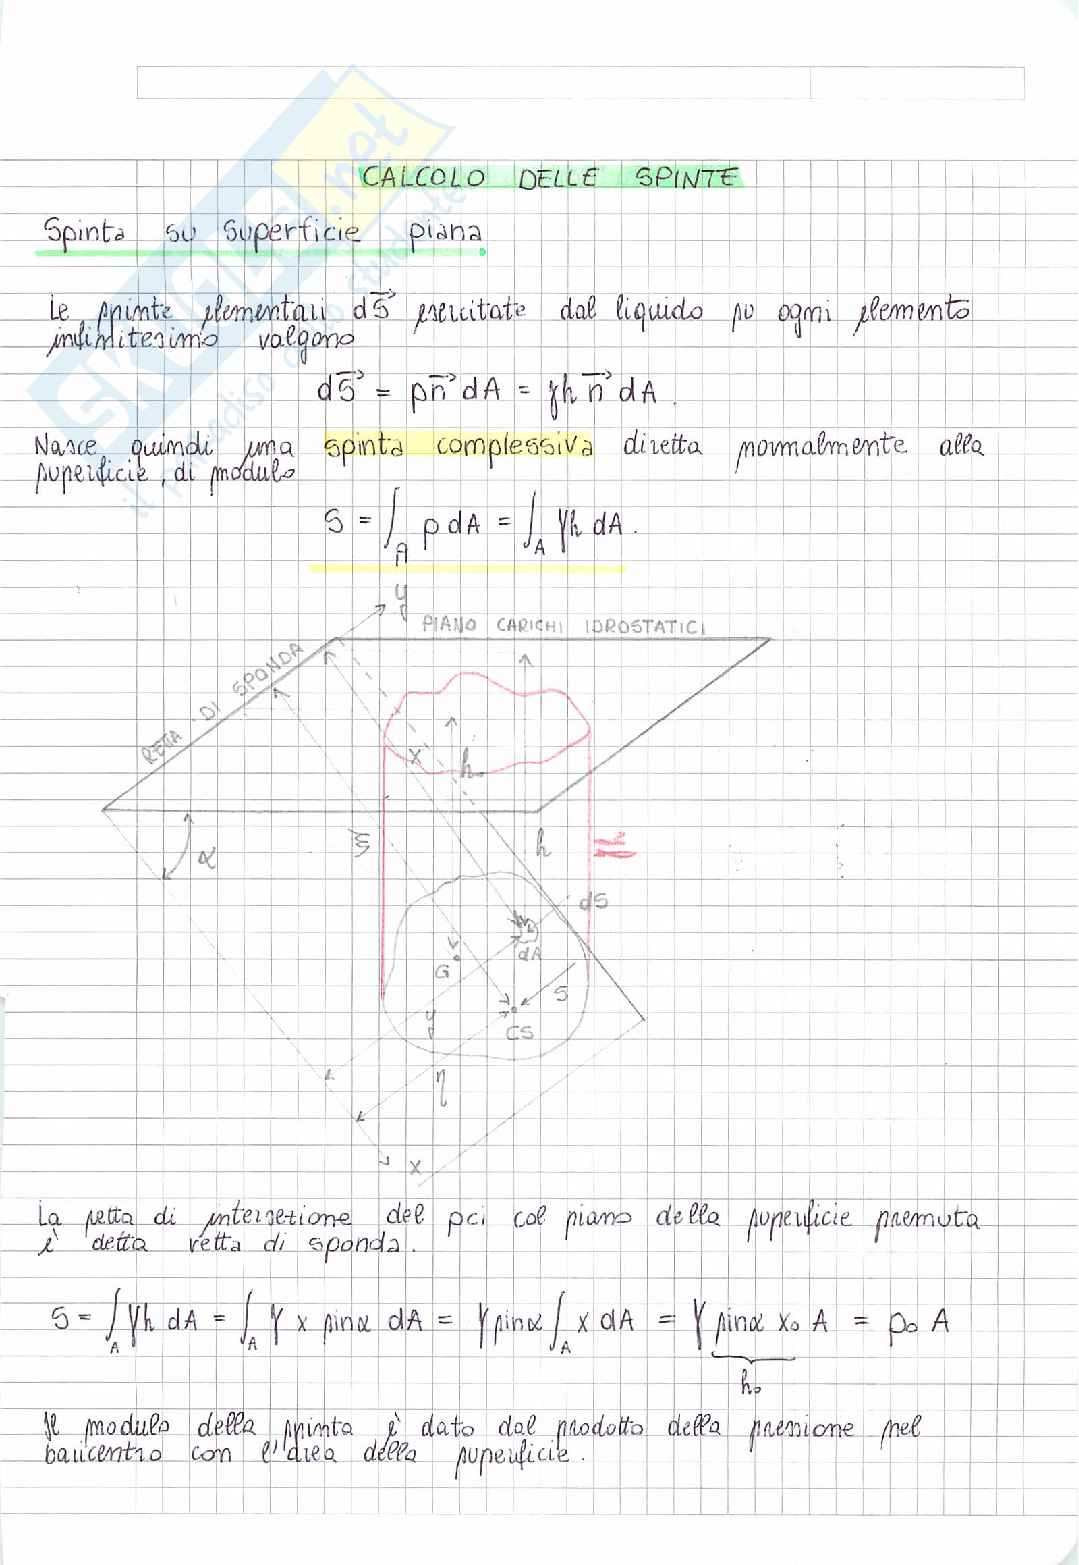 CALCOLO DELLE SPINTE
Spinta su superficie piana
Le spinte elementari dS⃗ esercitate dal liquido su ogni elemento
infinitesimo valgono
dS⃗ = pn⃗ dA = γh n⃗ dA.
Nasce quindi una spinta complessiva diretta normalmente alla
superficie, di modulo
S = ∫_A p dA = ∫_A γh dA.
y
PIANO CARICHI IDROSTATICI
RETTA DI SPONDA
x
h
ξ
α
h
dS
dA
G
S
y
CS
η
x
La retta di intersezione del pci col piano della superficie premuta
è detta retta di sponda.
S = ∫_A γh dA = ∫_A γ x sinα dA = γ sinα ∫_A x dA = γ sinα x₀ A = p₀ A
h₀
Il modulo della spinta è dato dal prodotto della pressione nel
baricentro con l'area della superficie.
SKUOLA.net
il paradiso dello studente